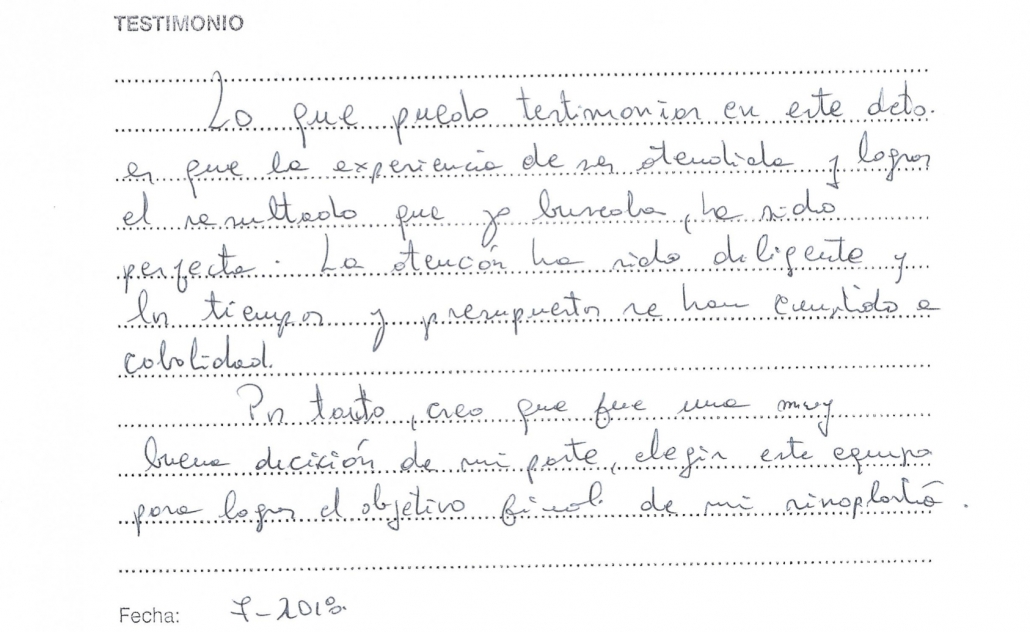 TESTIMONIO
Lo que puedo testimoniar en este dcto.
es que la experiencia de ser atendida y lograr
el resultado que yo buscaba, ha sido
perfecta. La atención ha sido diligente y
los tiempos y presupuestos se han cumplido a
cabalidad.
Por tanto, creo que fue una muy
buena decición de mi parte, elegir este equipo
para lograr el objetivo final de mi rinoplastía.
Fecha: 7-2018.